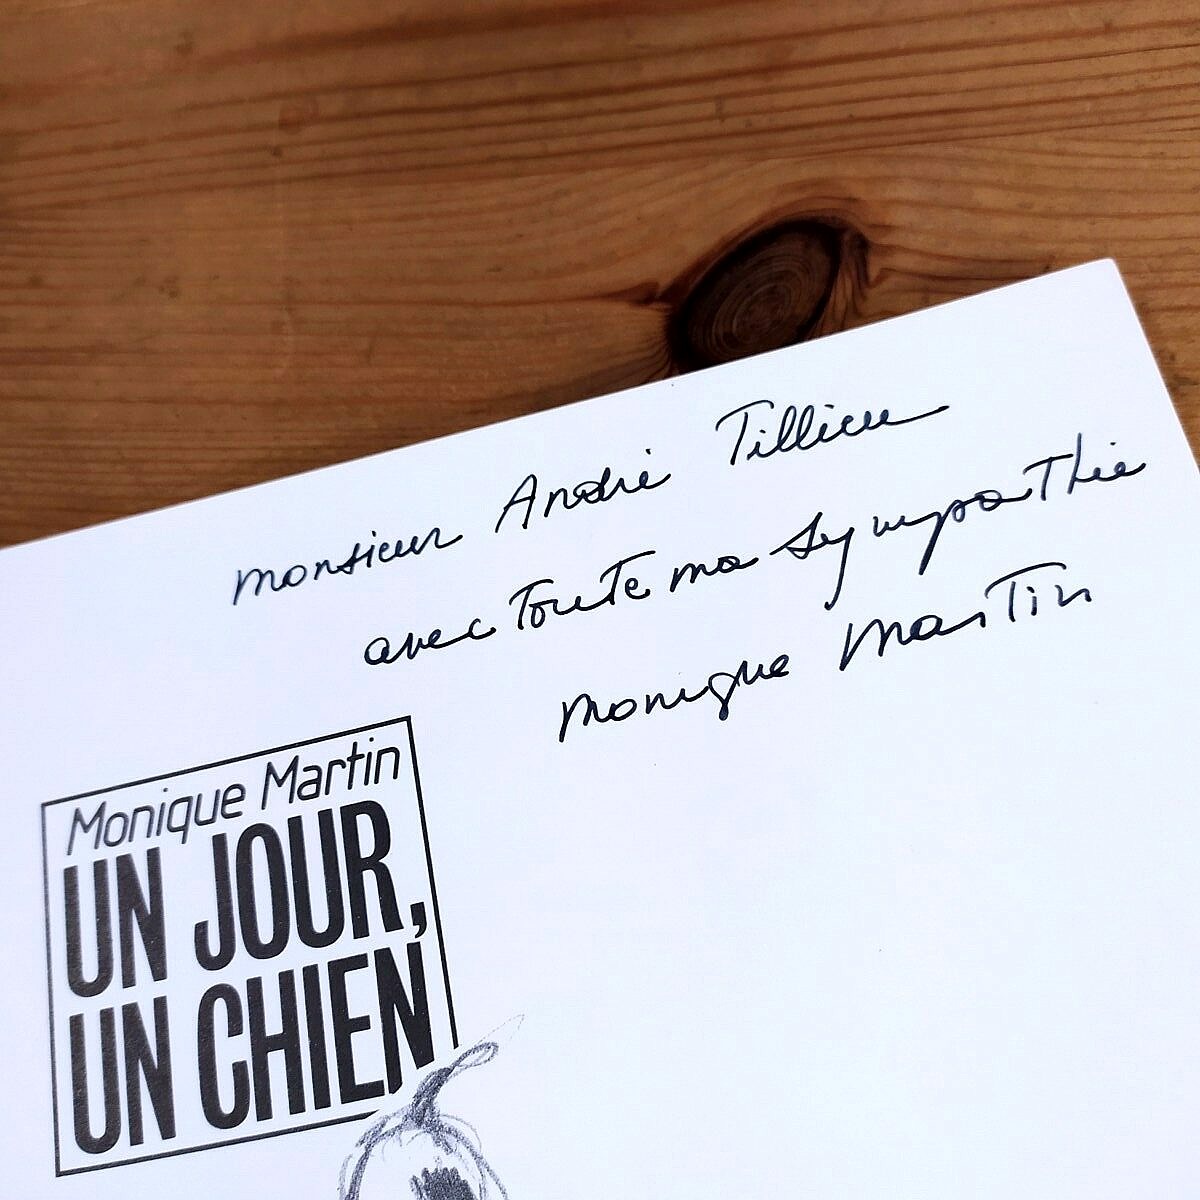 Monsieur André Tillieu
avec toute ma sympathie
Monique Martin
Monique Martin
UN JOUR,
UN CHIEN